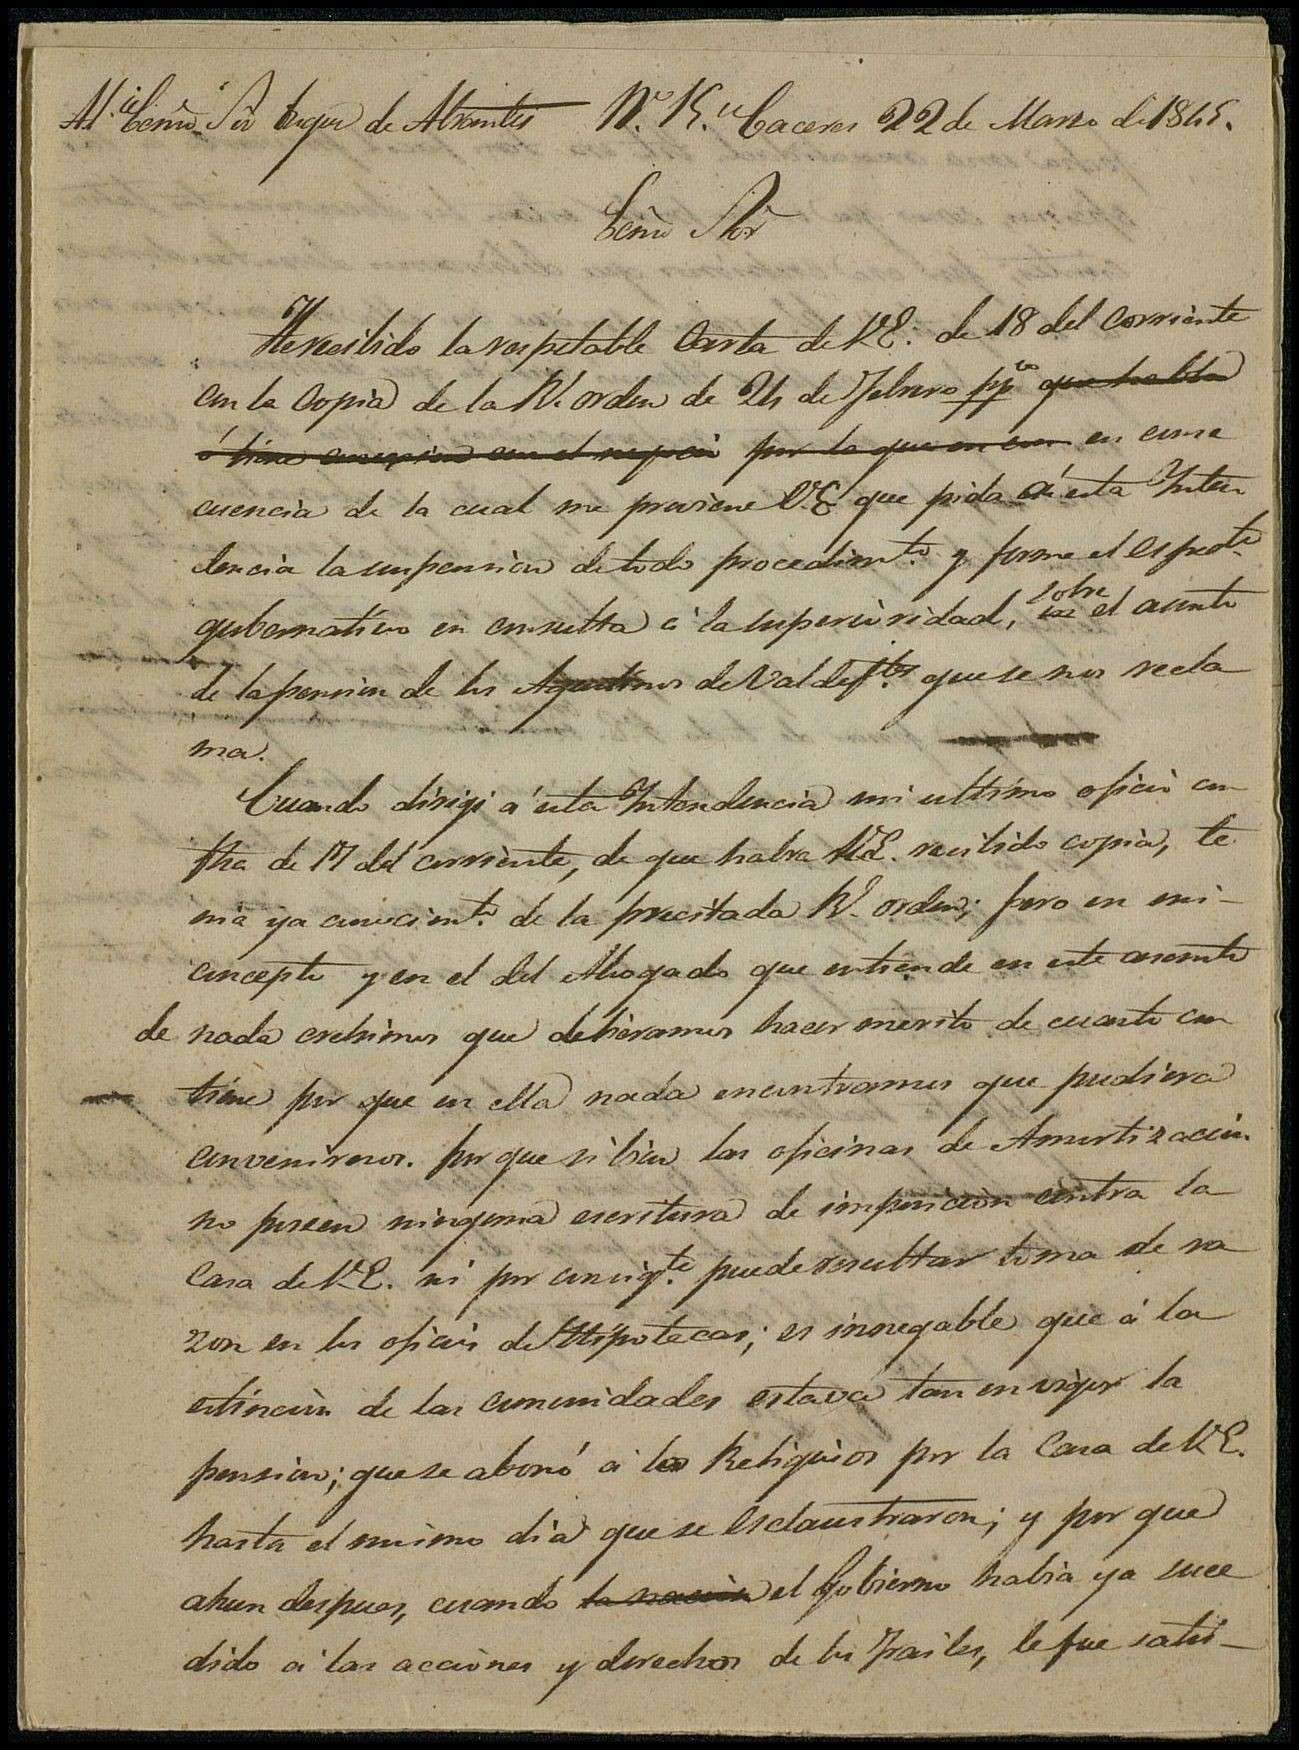 Exmo Sor Duque de Abrantes Caceres 22 de Marzo de 1845.
Exmo Sor
He recibido la respetable Carta de V.E. de 18 del corriente
con la copia de la Rl. orden de 24 de Febrero ppdo que habla
ó tiene conexion con el negocio por lo que en con en conse
cuencia de la cual me previene V.E. que pida á esta Inten
dencia la suspension de todo procedimto. y forme el espedte
gubernativo en consulta á la superioridad, sobre el asunto
de la pension de los Agustinos de Valdeftes. que se nos recla
ma.
Cuando dirigi á esta Intendencia mi ultimo oficio con
fha de 17 del corriente, de que habra V.E. recibido copia, te
nia ya conocimto. de la precitada Rl. orden; pero en mi
concepto y en el del Abogado que entiende en este asunto
de nada crehimos que debieramos hacer merito de cuanto con
tiene por que en ella nada encontramos que pudiera
convenirnos. por que si bien las oficinas de Amortizacion
no poseen ninguna escritura de imposicion contra la
Casa de V.E. ni por consigte. puede resultar toma de ra
zon en los oficios de Hipotecas; es innegable que á la
estincion de las comunidades estava tan en vigor la
pension; que se abonó á los Religiosos por la Casa de V.E.
hasta el mismo dia que se esclaustraron; y por que
ahun despues, cuando la nacion el Gobierno habia ya suce
dido á las acciones y derechos de los Frailes, le fue satis